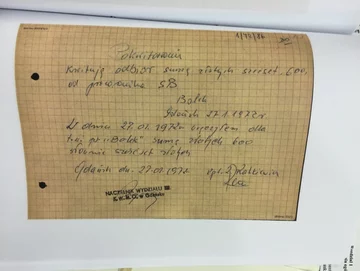 1/74/26
Pokwitowanie
Kwituję odbiór sumy złotych sześćset 600,
od pracownika SB
Bolek
Gdańsk 27.1.1972r.
W dniu 27.01.1972r wręczyłem dla
"Bolek" sumę złotych 600
słownie sześćset złotych
Gdańsk dn. 27.01.1972r.
NACZELNIK WYDZIAŁU III
K.W.M.O. w Gdańsku